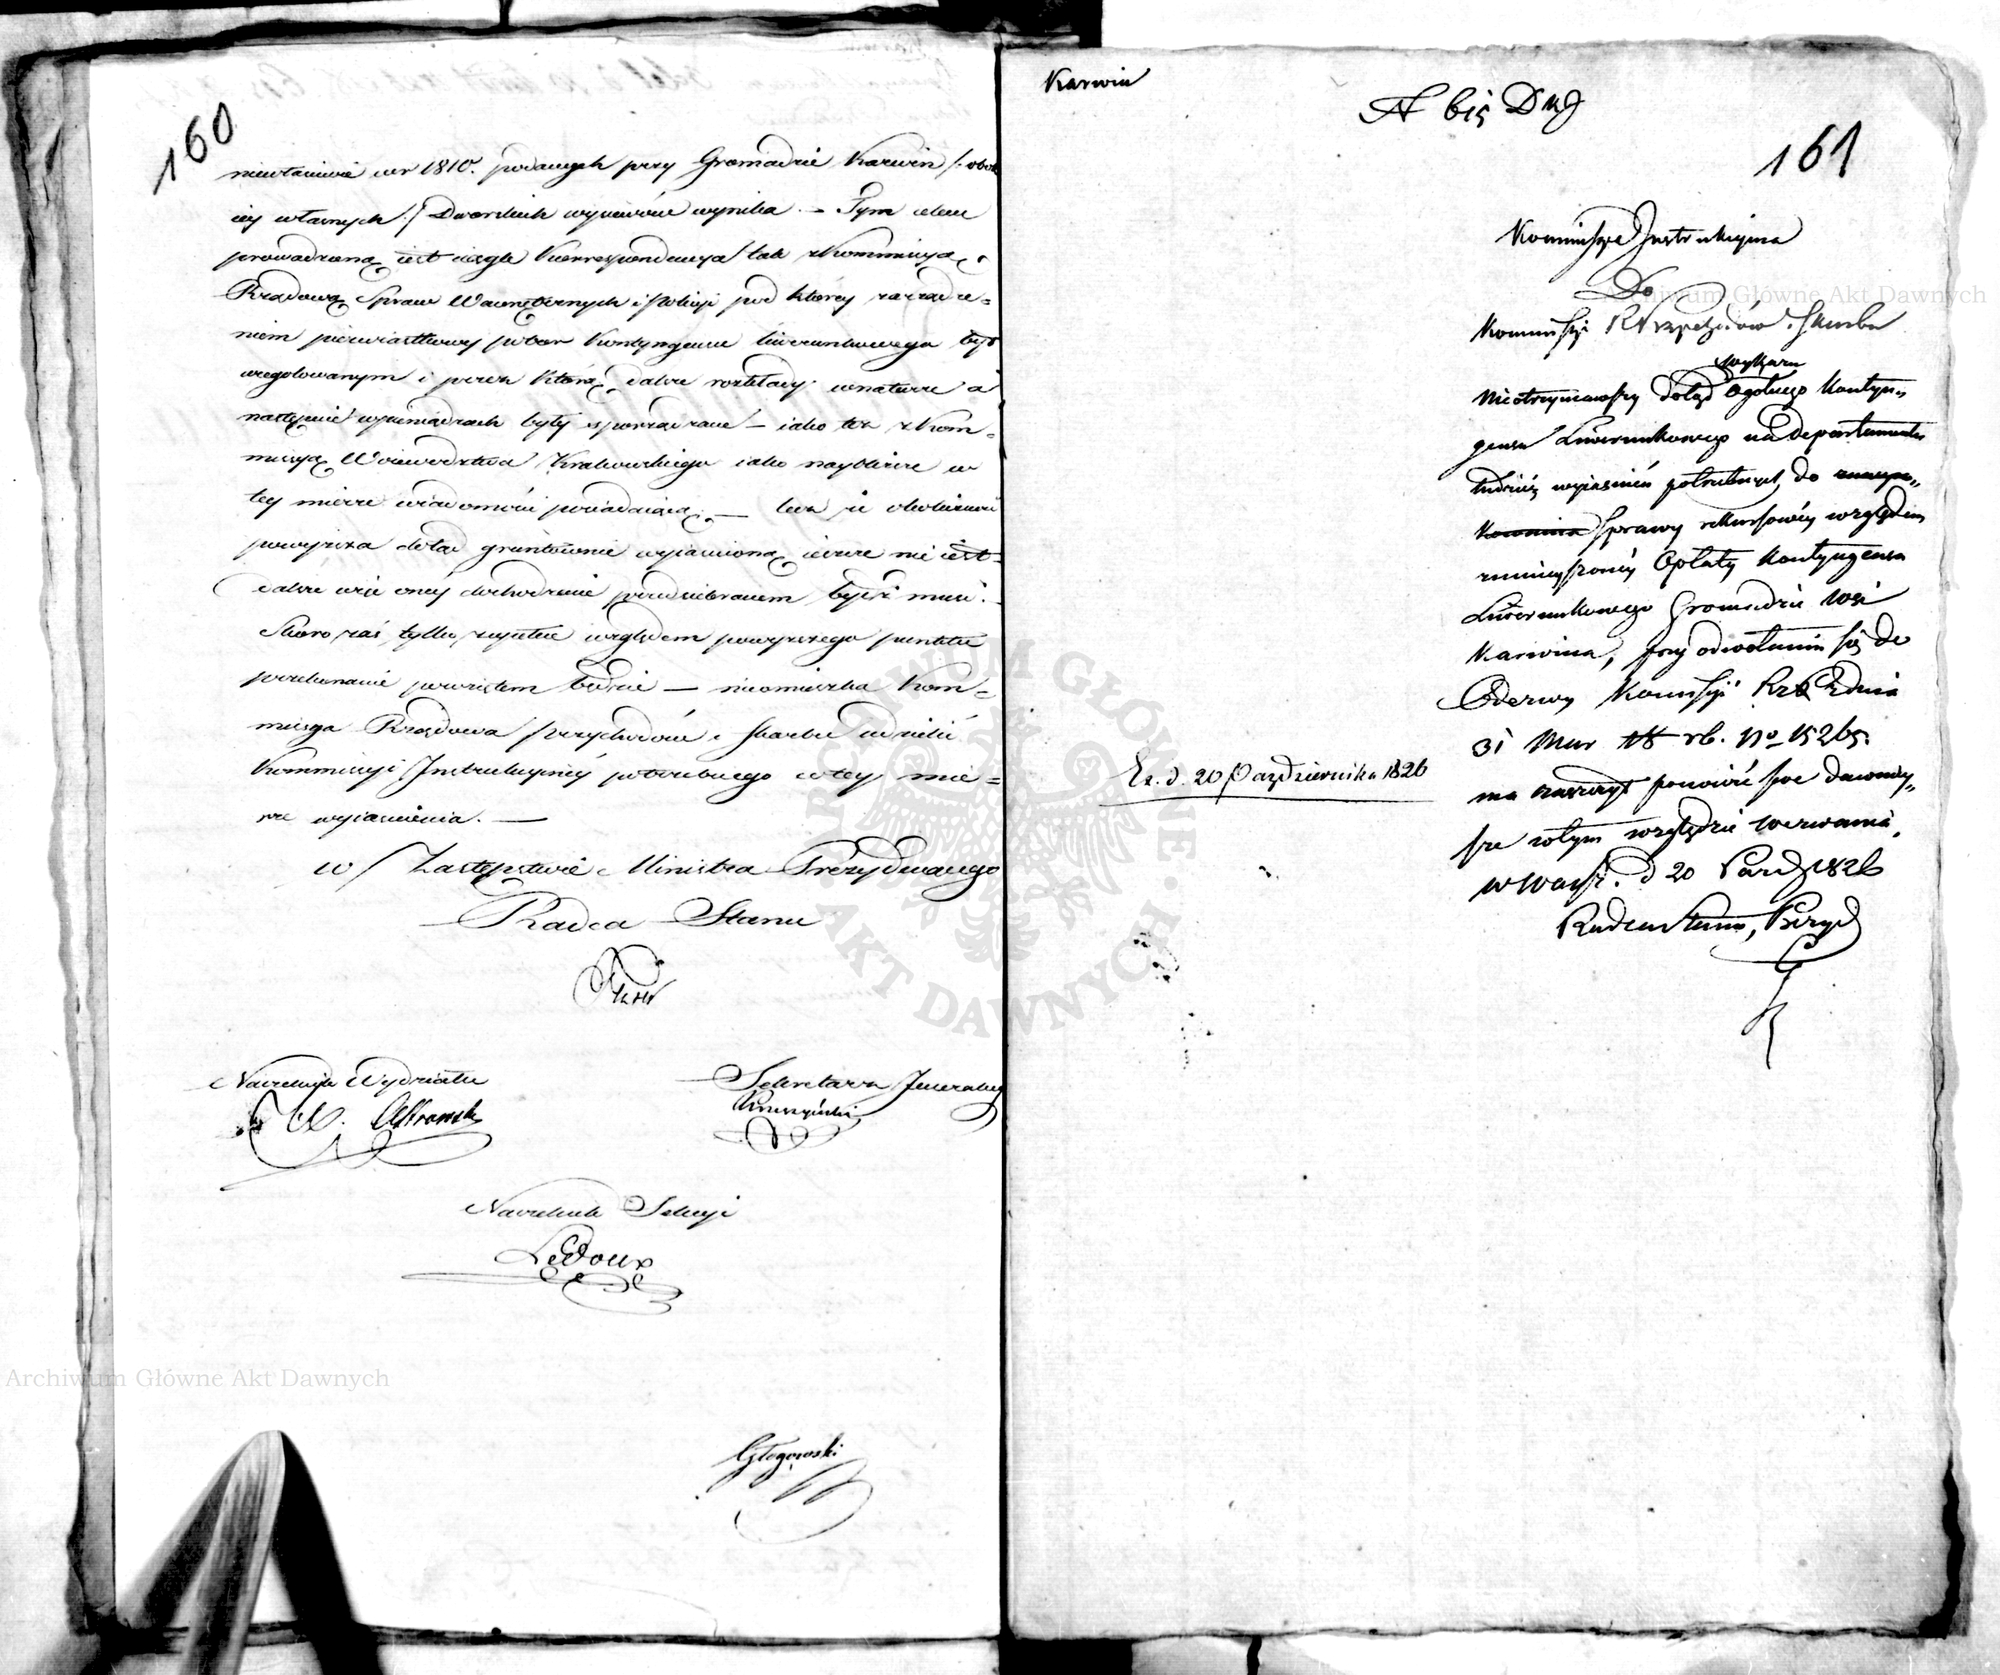 160
niewłaściwie w r 1810. podanych przy Gromadzie Karwin /: obok
iey własnych :/ Dworskich wysiewów wynika. — Tym celem
prowadzona iest ciągle Korrespondencya tak z Kommissyą
Rządową Spraw Wewnętrznych i Policyi pod którey zarządze=
niem pierwiastkowy pobór Kontyngensu liwerunkowego był
uregulowanym i przez którą dalsze rozkłady w naturze a
następnie w pieniądzach były sporządzane — iako też z Kom=
missyą Woiewództwa Krakowskiego iako naybliższe w
tey mierze wiadomości posiadaiącą. — lecz że okoliczność
powyższa dotąd gruntownie wyiaśnioną ieszcze nie iest
dalsze więc oney dochodzenie przedsiębranem bydź musi. —
Skoro zaś tylko zupełne względem powyższego punktu
przekonanie powziętem będzie — nieomieszka Kom=
missya Rządowa Przychodów i Skarbu udzielić
Kommissyi Instrukcyiney potrzebnego w tey mie=
rze wyiaśnienia. —
w Zastępstwie Ministra Prezyduiącego
Radca Stanu
Naczelnik Wydziału
Sekretarz Jeneralny
Kruszyński
Naczelnik Sekcyi
Ledoux
Głogowski
Karwin
A bis Dug
161
Kommissya Instrukcyina
Do
Kommissyi R Przychodów i Skarbu
wykazu
Nieotrzymawszy dotąd Ogólnego Kontyn„
gensu Liwerunkowego na departamenta
tudzież wyiaśnień potrzebnych, do
sprawy rekursowey względem
zmnieyszoney Opłaty Kontyngensu
Liwerunkowego Gromadzie Wsi
Karwina, przy odwołaniu się do
Odezwy Kommissyi Rzą z dnia
31 Mar rb. No 15265.
ma zaszczyt ponowić swe dawniey„
sze w tym względzie wezwania.
w Warsz. d 20 Paźdz 1826
Radca Stanu, Prezyd
Ex. d. 20 Października 1826
Archiwum Główne Akt Dawnych
Archiwum Główne Akt Dawnych
ARCHIWUM GŁÓWNE AKT DAWNYCH